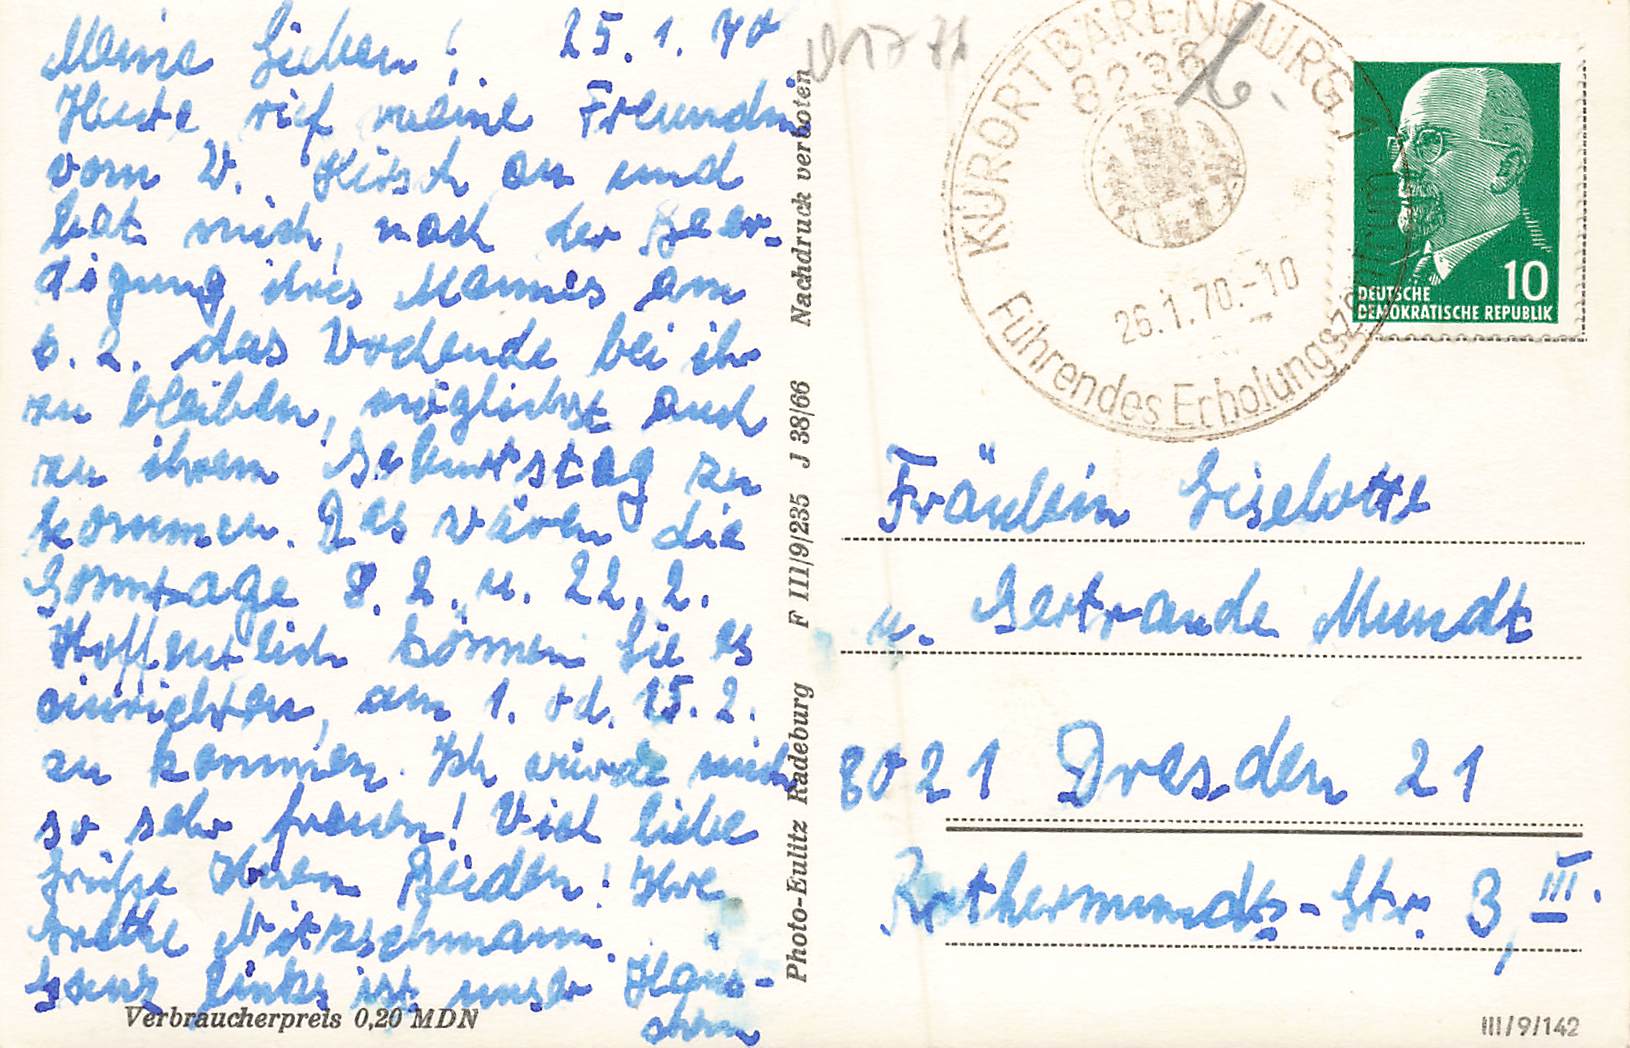 Meine Lieben! 25. 1. 70
Heute rief meine Freundin
vom W. Hirsch an und
bat mich, nach der Beer-
digung ihres Mannes am
6. 2. das Wochende bei ihr
zu bleiben, möglichst auch
zu ihrem Geburtstag zu
kommen. Das wären die
Sonntage 8. 2. u. 22. 2.
Hoffentlich können Sie es
einrichten, am 1. od. 15. 2.
zu kommen. Ich würde mich
so sehr freuen! Viel liebe
Grüße Ihnen Beiden! Ihre
Grethe Nitzschmann.
Ganz links ist unser Häus-
chen
Verbraucherpreis 0,20 MDN
Photo-Eulitz Radeburg F III/9/235 J 38/66 Nachdruck verboten
KURORT BÄRENBURG
8236
26.1.70.-10
Führendes Erholungszentrum
10
DEUTSCHE
DEMOKRATISCHE REPUBLIK
Fräulein Giselotte
u. Gertraude Mundt
8021 Dresden 21
Rothermundt-Str. 3, III.
III/9/142